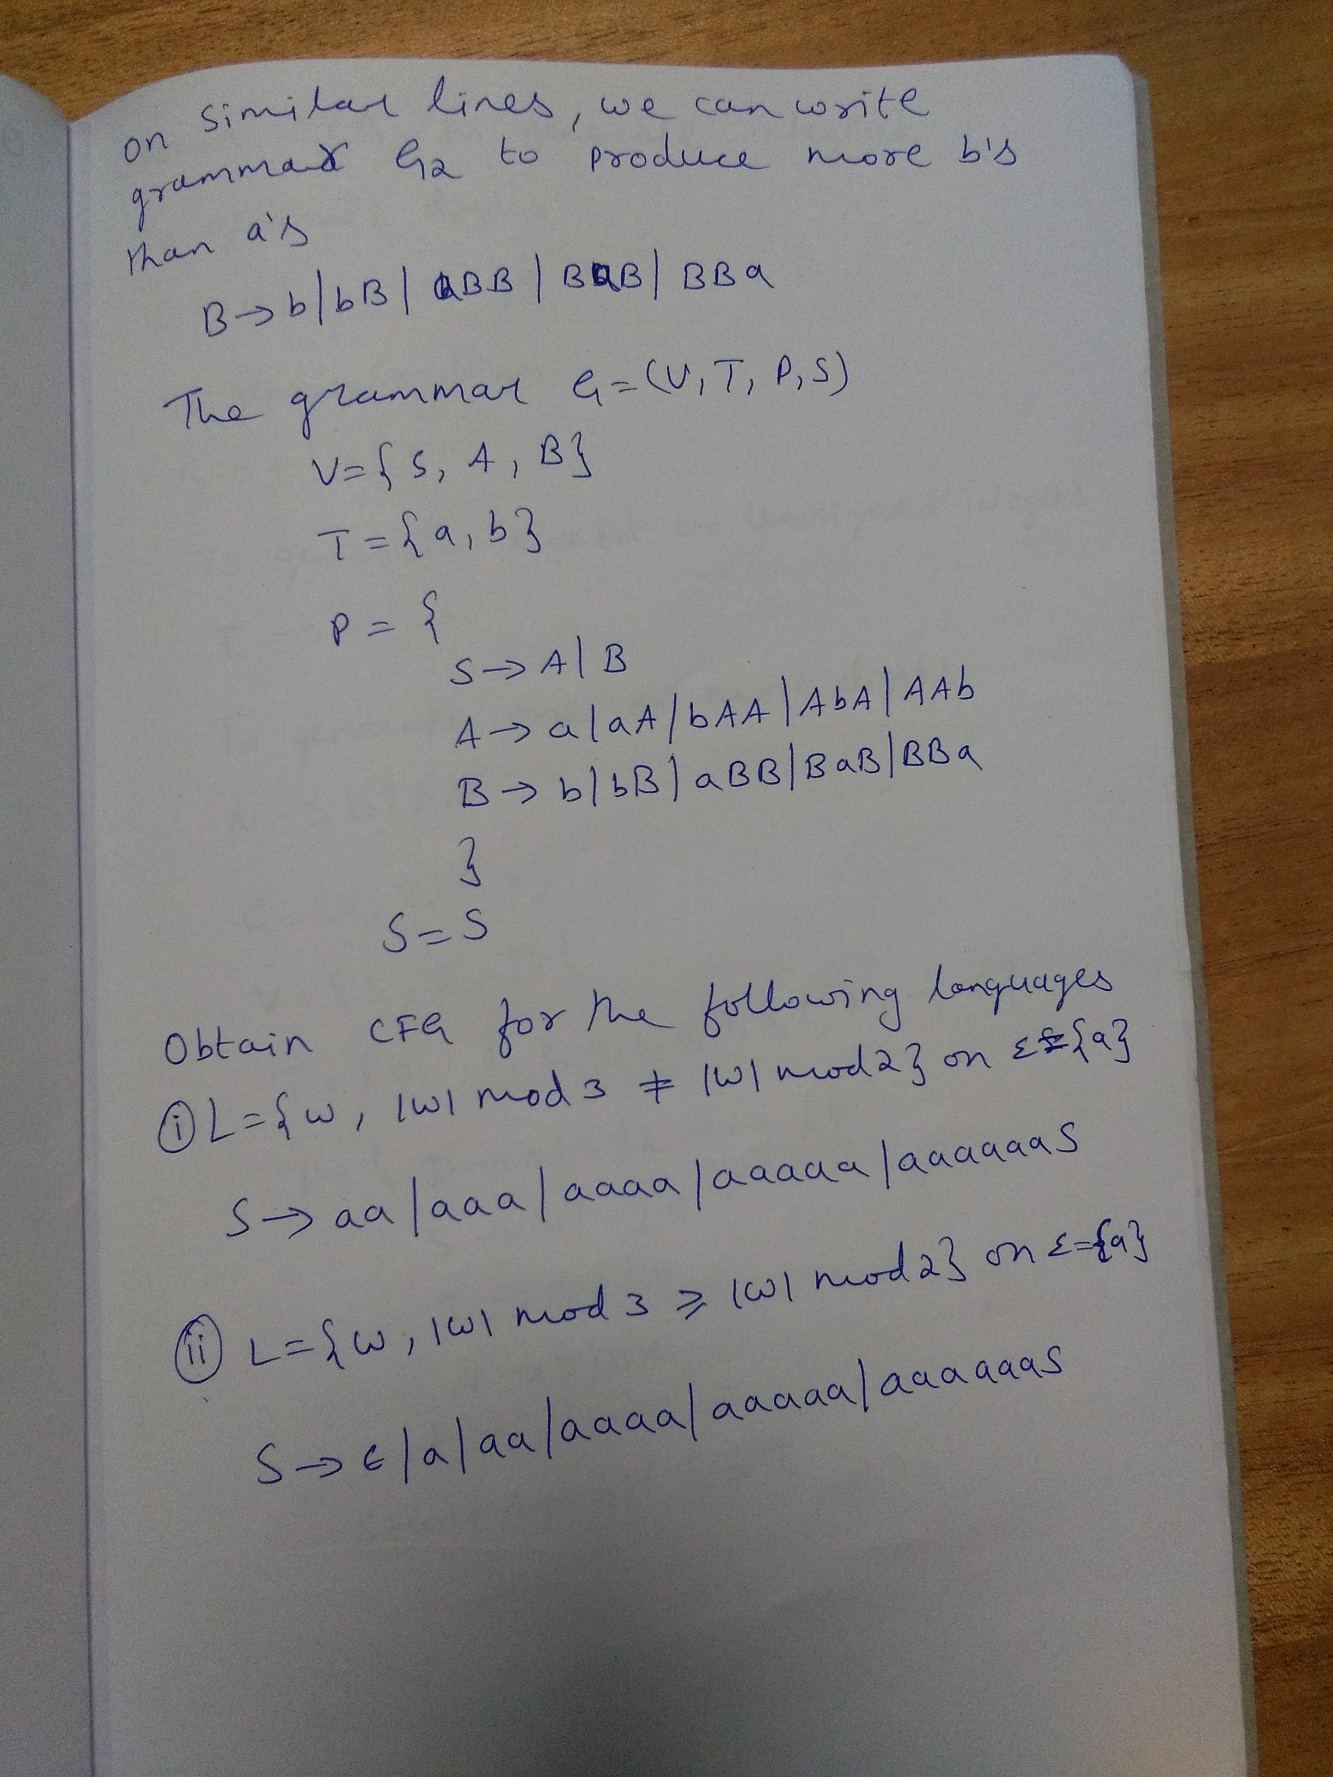 on similar lines, we can write
grammar G2 to produce more b's
than a's
B→b|bB|aBB|BaB|BBa
The grammar G=(V,T,P,S)
V={S, A, B}
T={a,b}
P={
S→A|B
A→a|aA|bAA|AbA|AAb
B→b|bB|aBB|BaB|BBa
}
S=S
Obtain CFG for the following languages
(i) L={w, |w| mod 3 ≠ |w| mod 2} on Σ={a}
S→aa|aaa|aaaa|aaaaa|aaaaaaS
(ii) L={w, |w| mod 3 ≥ |w| mod 2} on Σ={a}
S→ϵ|a|aa|aaaa|aaaaa|aaaaaaS